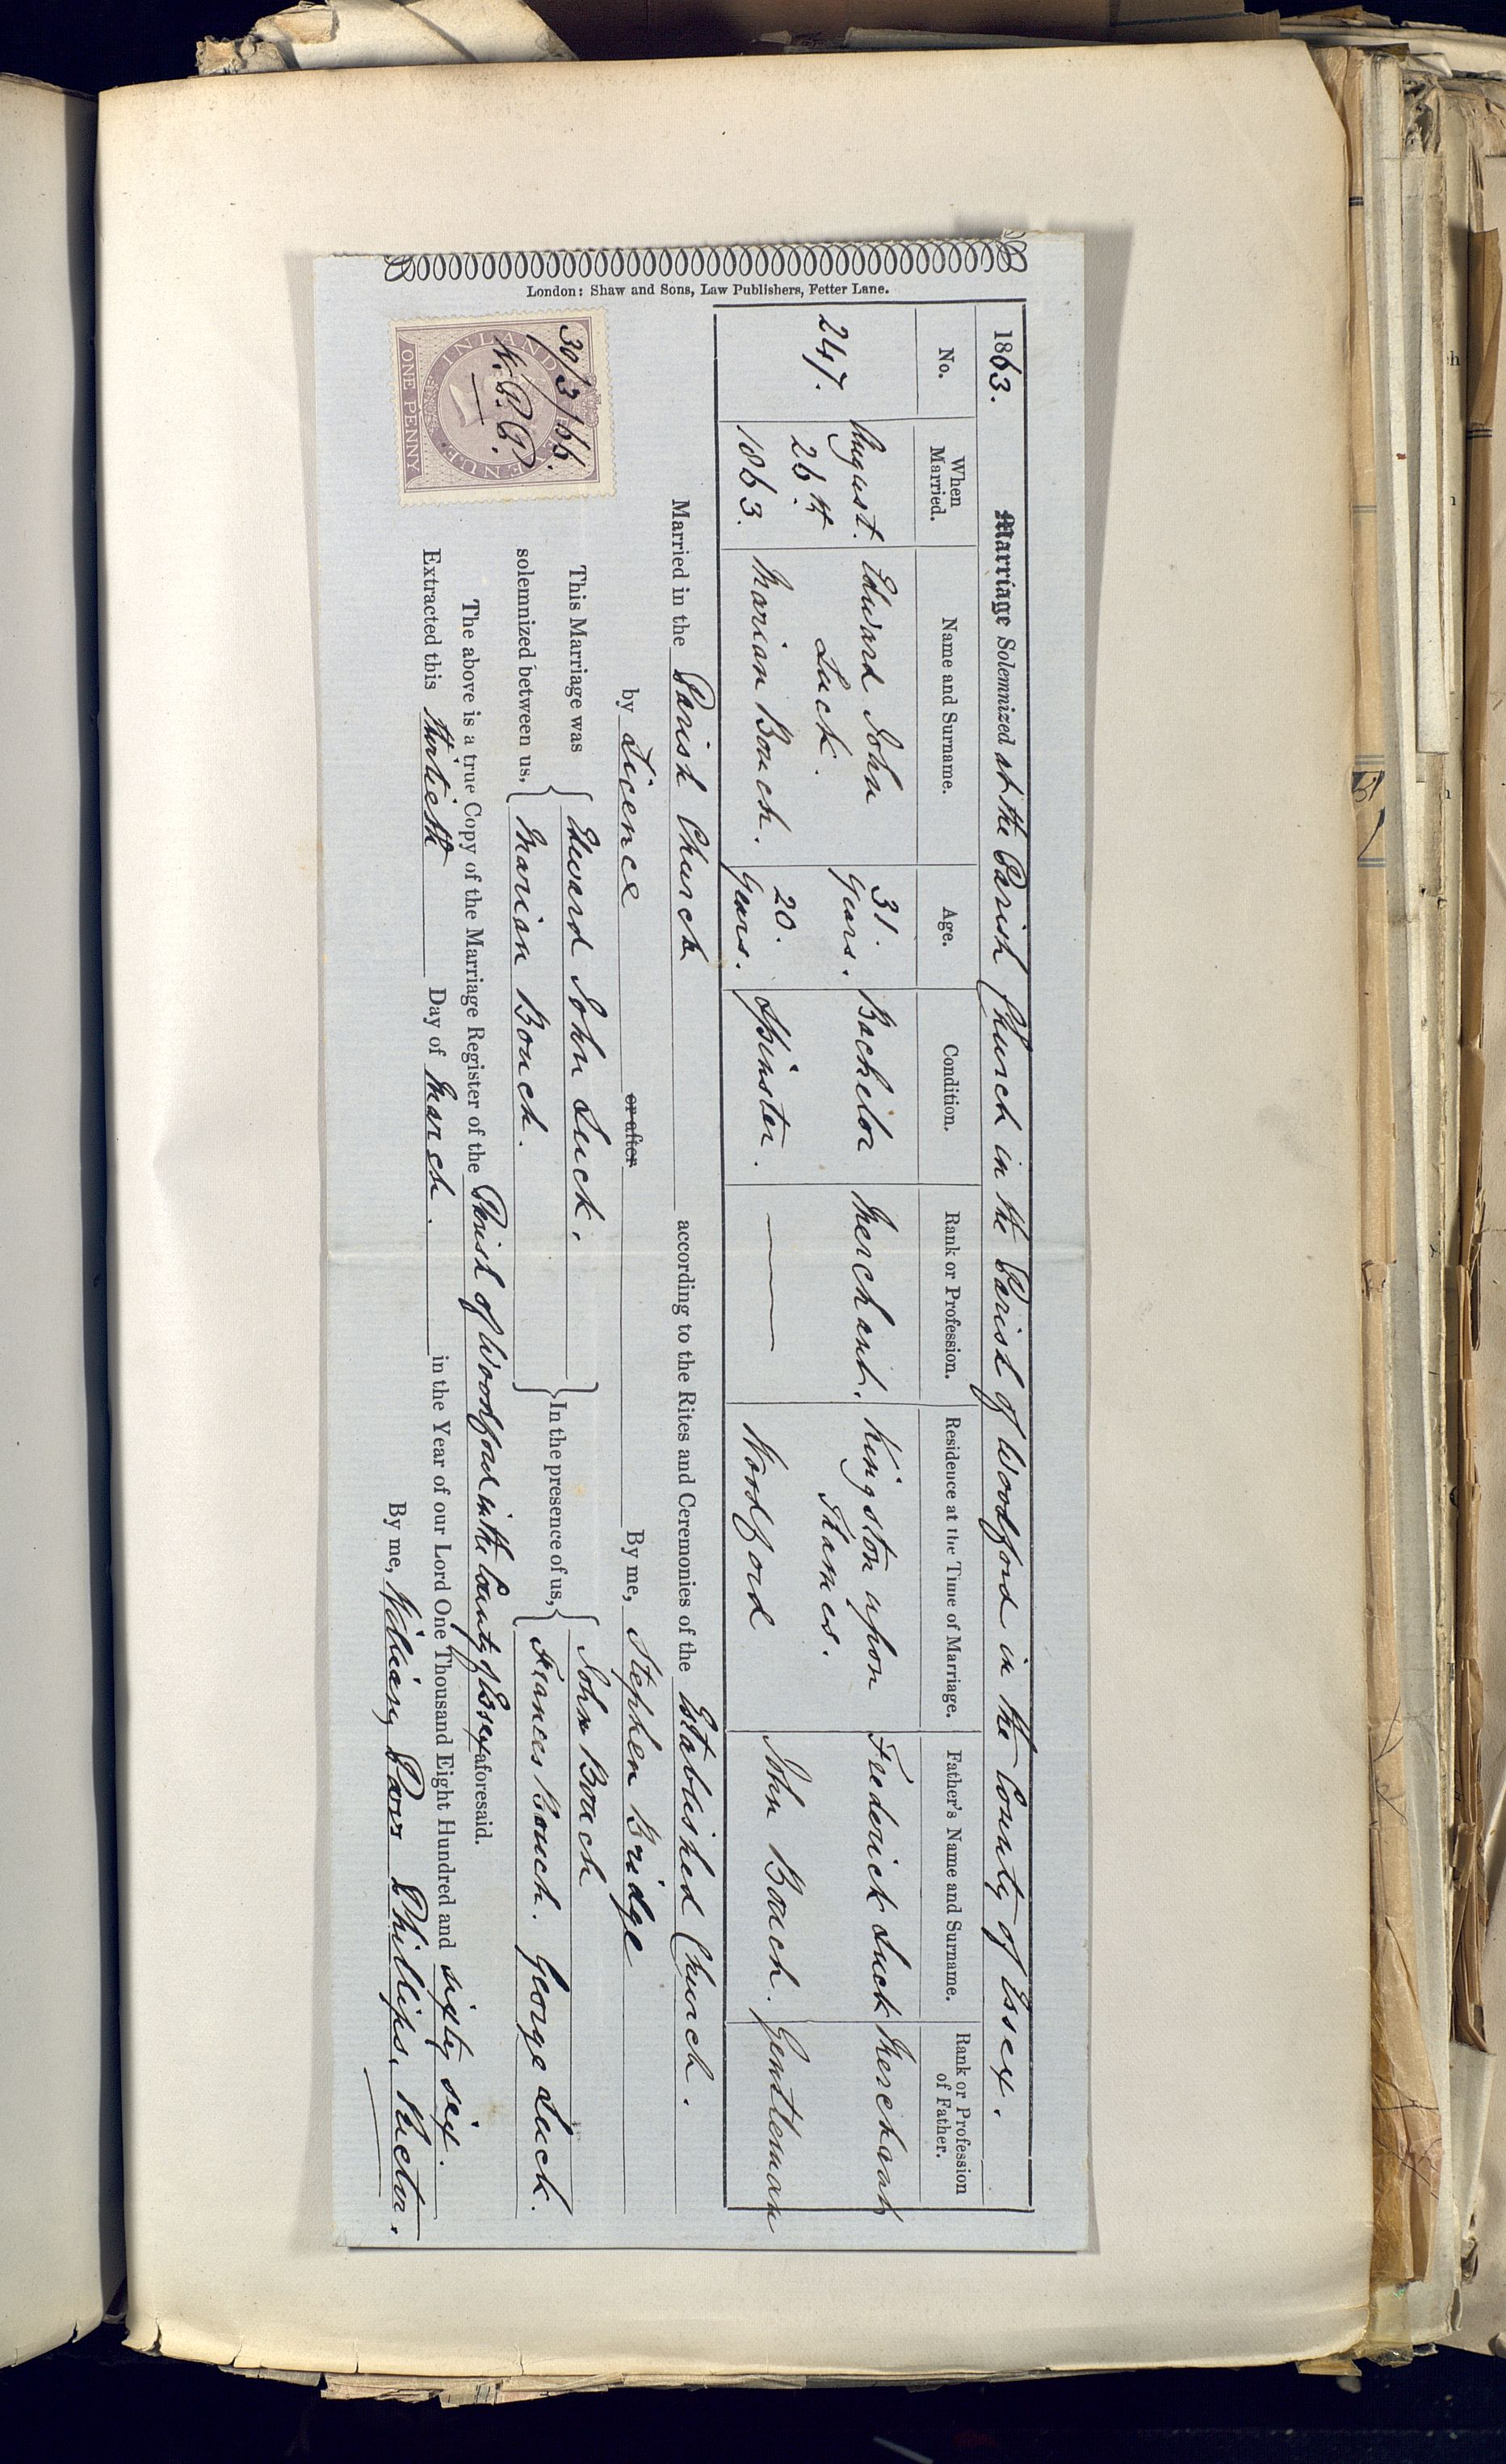 London: Shaw and Sons, Law Publishers, Fetter Lane.
1863. Marriage Solemnized at the Parish Church in the Parish of Woodford in the County of Essex.
No. When Married. Name and Surname. Age. Condition. Rank or Profession. Residence at the Time of Marriage. Father's Name and Surname. Rank or Profession of Father.
247. August. 26th 1863.
Edward John Luck. 31. Years. Bachelor Merchant. Kingston upon Thames. Frederick Luck Merchant
Marian Bouch. 20. Years. Spinster. — Woodford John Bouch. Gentleman
Married in the Parish Church according to the Rites and Ceremonies of the Established Church.
by Licence or after By me, Stephen Bridge
This Marriage was solemnized between us,
Edward John Luck.
Marian Bouch.
In the presence of us,
John Bouch
Frances Bouch. George Luck.
The above is a true Copy of the Marriage Register of the Parish of Woodford in the County of Essex aforesaid.
Extracted this Thirtieth Day of March. in the Year of our Lord One Thousand Eight Hundred and sixty six.
By me, William Parr Phillips. Rector.
INLAND REVENUE
ONE PENNY
30/3/66.
W.P.P.